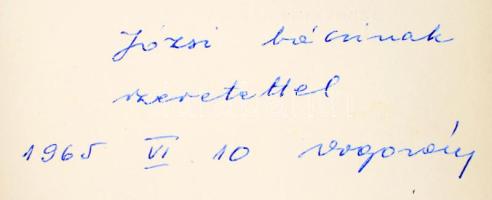 Józsi bácsinak
szeretettel
1965 VI 10